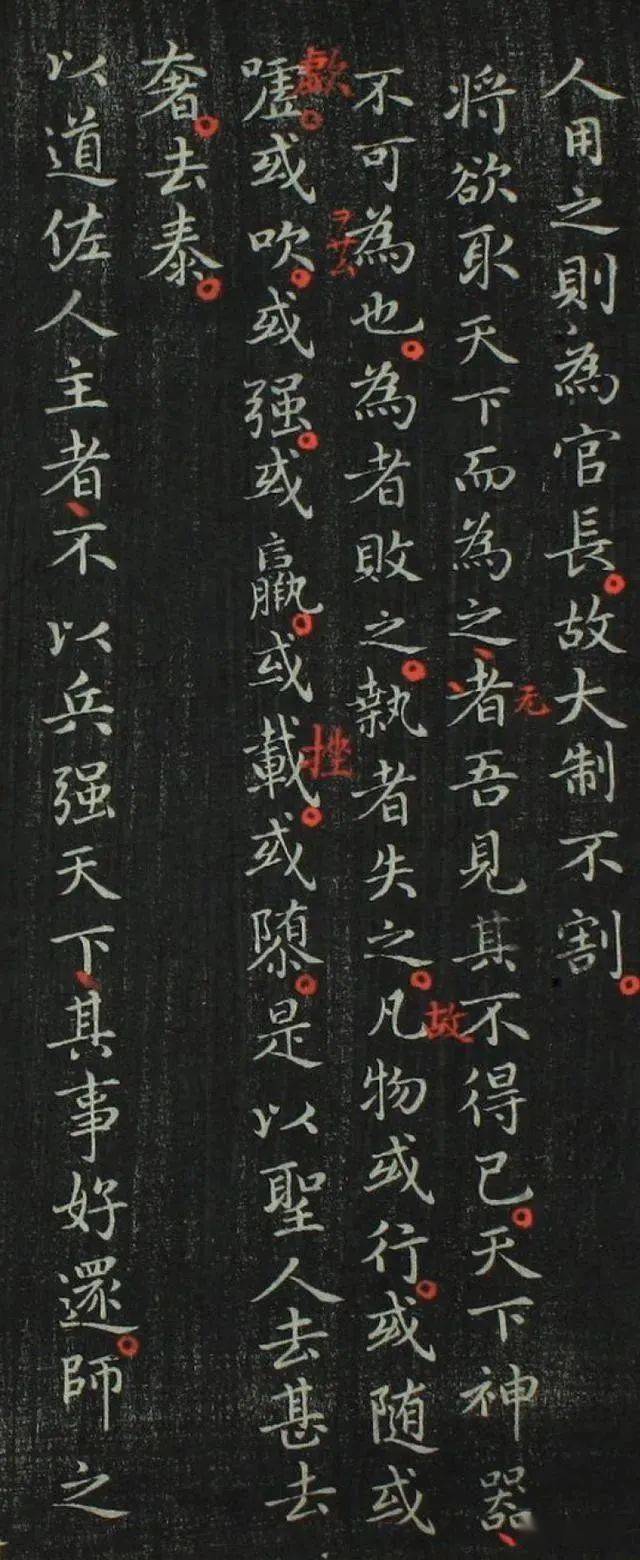 人用之則為官長。故大制不割。
将欲取天下而為之、者吾見其不得已。天下神器、
无
不可為也。為者敗之。執者失之。凡物或行。或随或
故
ヲサム
嘘。或吹。或强。或羸。或載。或隳。是以聖人去甚去
歔
挫
奢。去泰。
以道佐人主者、不以兵强天下、其事好還。師之